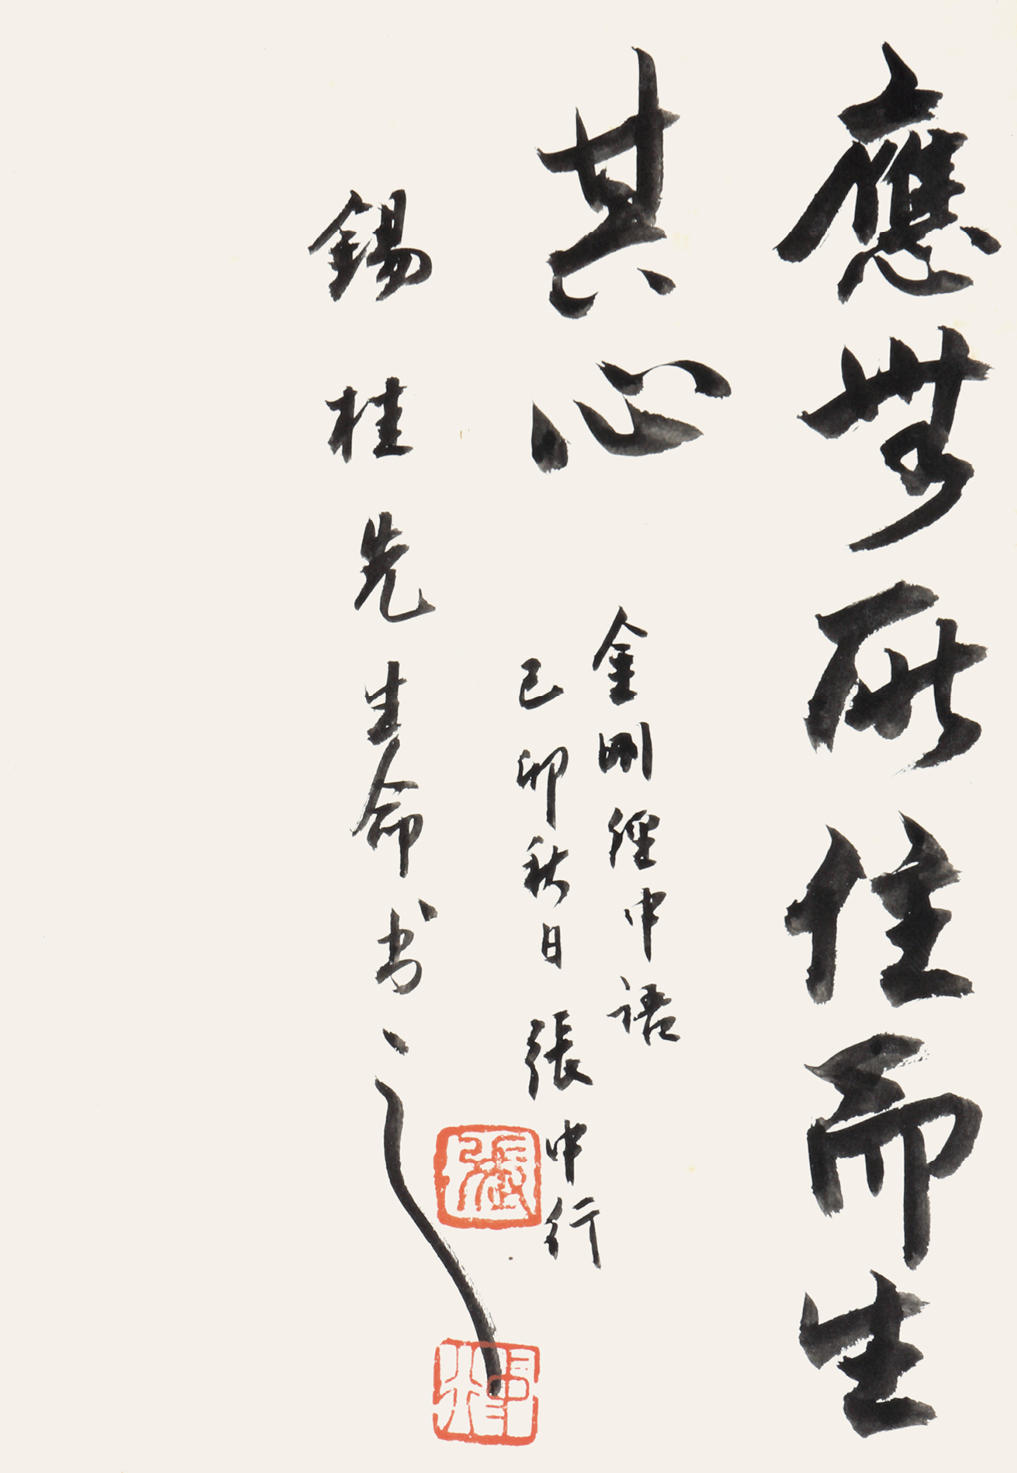 應無所住而生
其心
金剛經中語
己卯秋日張中行
錫桂先生命书之
張